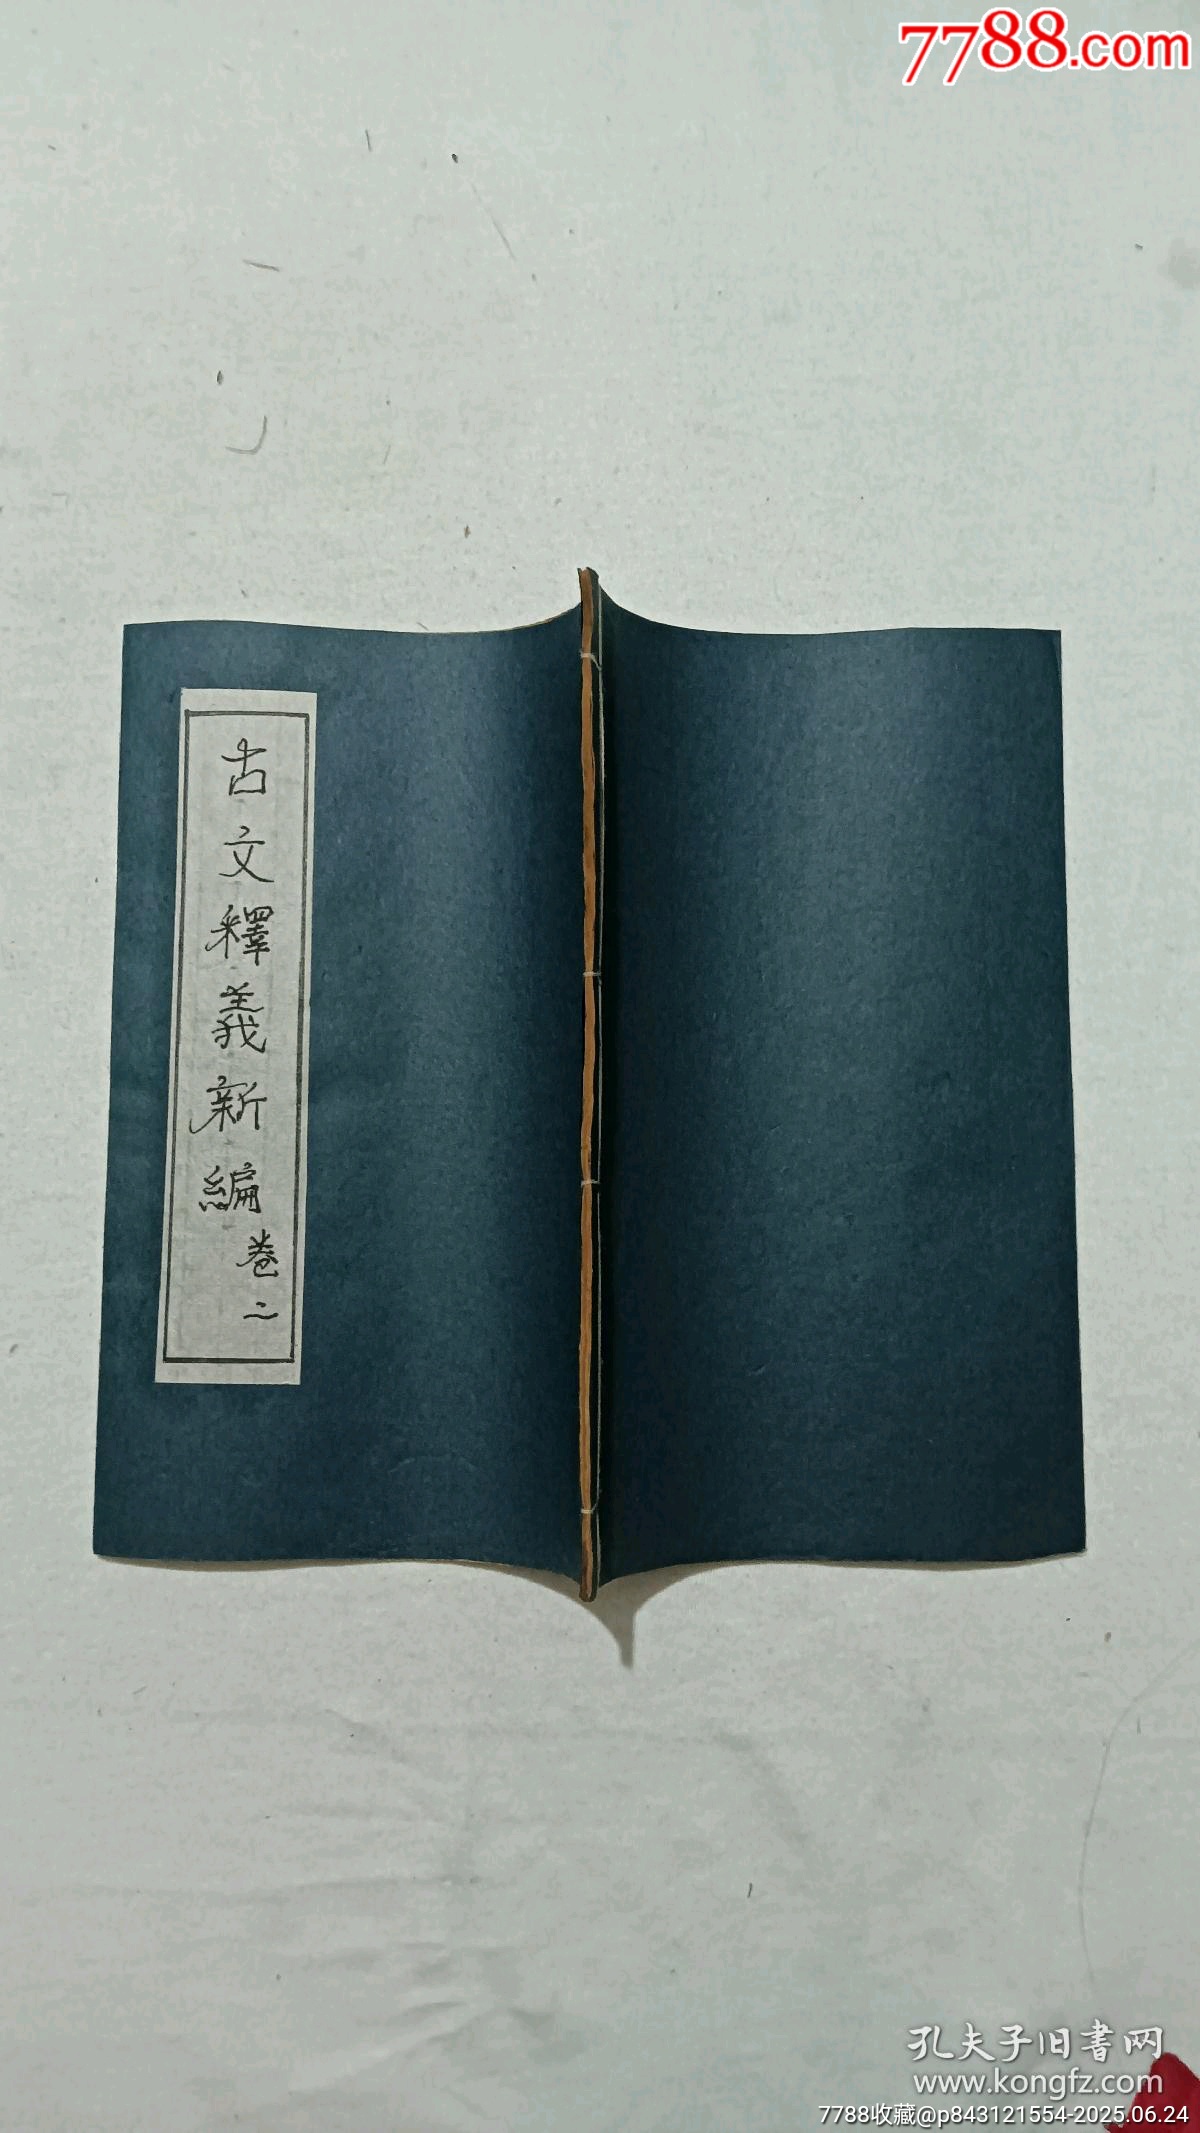 7788.com
古文釋義新編
卷二
孔夫子旧書网
www.kongfz.com
7788收藏@p843121554-2025.06.24